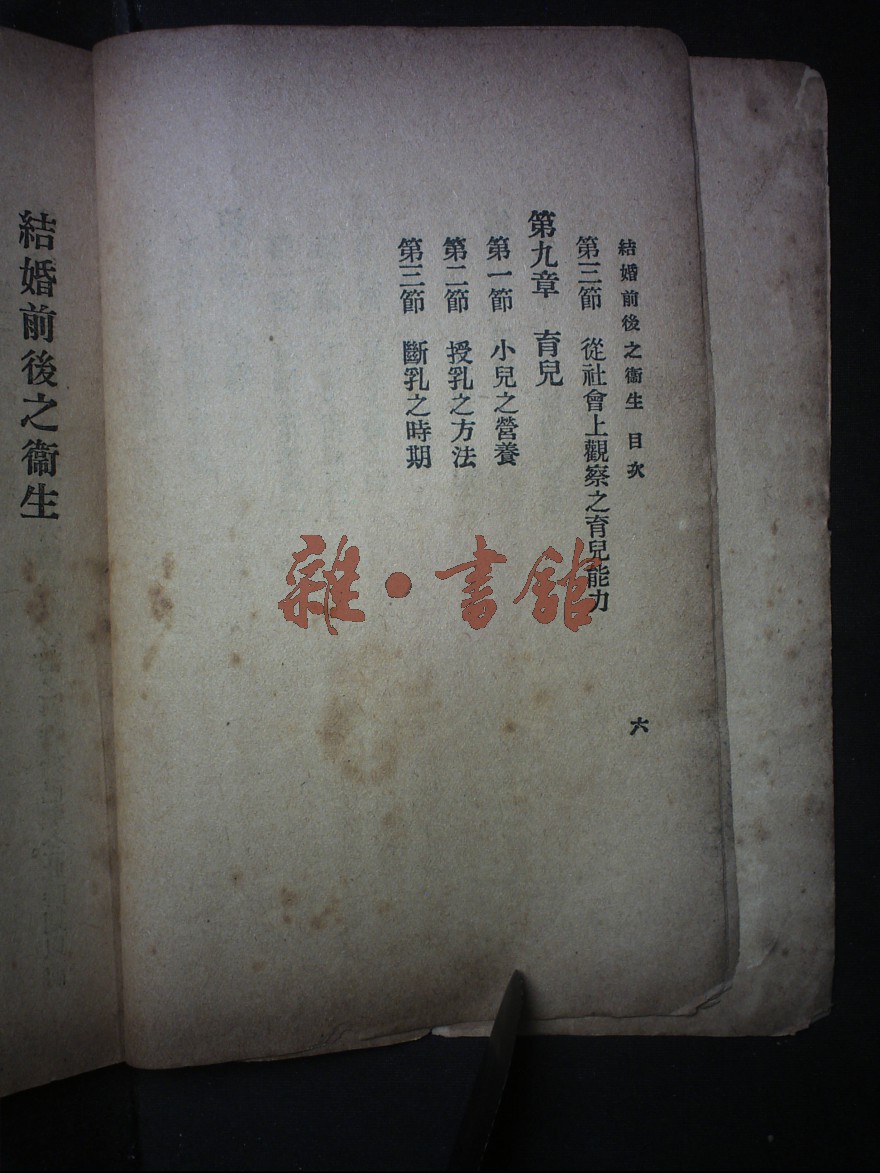 結婚前後之衞生 目次
第三節 從社會上觀察之育兒能力
第九章 育兒
第一節 小兒之營養
第二節 授乳之方法
第三節 斷乳之時期
六
結婚前後之衞生
雜·書館